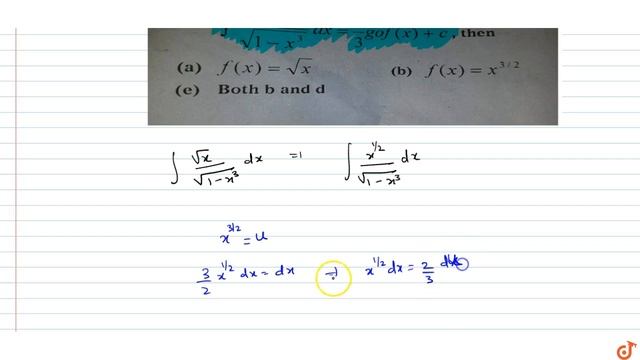 ∫ / √(1 − x³) dx = /3 gof (x) + c, then
(a) f(x) = √x (b) f(x) = x^{3/2}
(e) Both b and d
∫ √x / √(1 − x³) dx = ∫ x^{1/2} / √(1 − x³) dx
x^{3/2} = u
3/2 x^{1/2} dx = dx x^{1/2} dx = 2/3